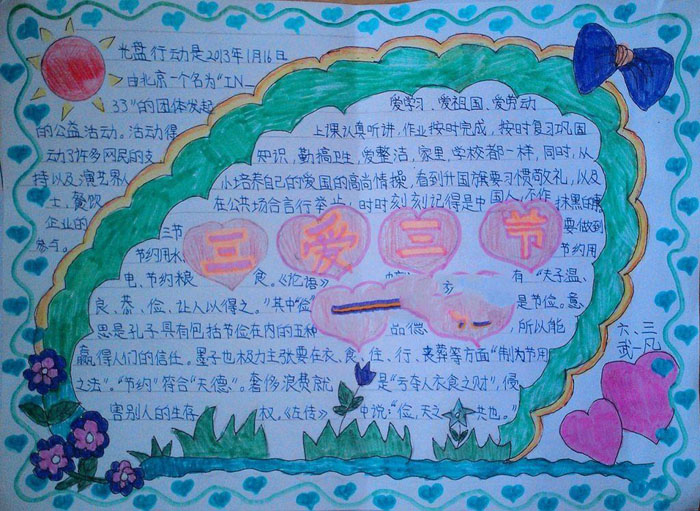 光盘行动是2013年1月16日
由北京一个名为"IN
33"的团体发起
的公益活动。活动得
动了许多网民的支
持以及演艺界从
士、餐饮
企业的
参与。
爱学习、爱祖国、爱劳动
上课认真听讲,作业按时完成,按时复习巩固
知识,勤搞卫生,爱整洁,家里,学校都一样,同时,从
小培养自己的爱国的高尚情操,看到升国旗要习惯敬礼,以及
在公共场合言行举止,时时刻刻记得是中国人,不作抹黑的事
三爱三节
三节
要做到
节约用水
节约用
电、节约粮食。《论语》
有"夫子温、
良、恭、俭、让人以得之。"其中"俭"
是节俭。意
思是孔子具有包括节俭在内的五种
品德
,所以能
赢得人们的信任。墨子也极力主张要在衣、食、住、行、丧葬等方面"制为节用
之法"。"节约"符合"天德"。奢侈浪费就是"亏夺人衣食之财",侵
害别人的生存权。《左传》中说:"俭,天之共也。"
六、三
武一凡